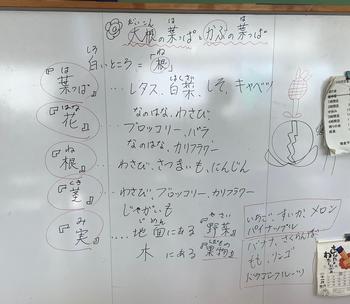 だいこん は は
大根の葉っぱとかぶの葉っぱ
しろ ね
白いところ=『根』
は
『葉っぱ』…レタス、白菜、しそ、キャベツ
はくさい
はな
『花』
なのはな、わさび、
ブロッコリー、バラ
なのはな、カリフラワー
ね
『根』… わさび、さつまいも、にんじん
くき
『茎』… わさび、ブロッコリー、カリフラワー
じゃがいも
み
『実』…
じめん やさい
地面にある『野菜』
くだもの
木にある『果物』
いちご、すいか、メロン
パイナップル
バナナ、さくらんぼ
もも、リンゴ
ドラゴンフルーツ